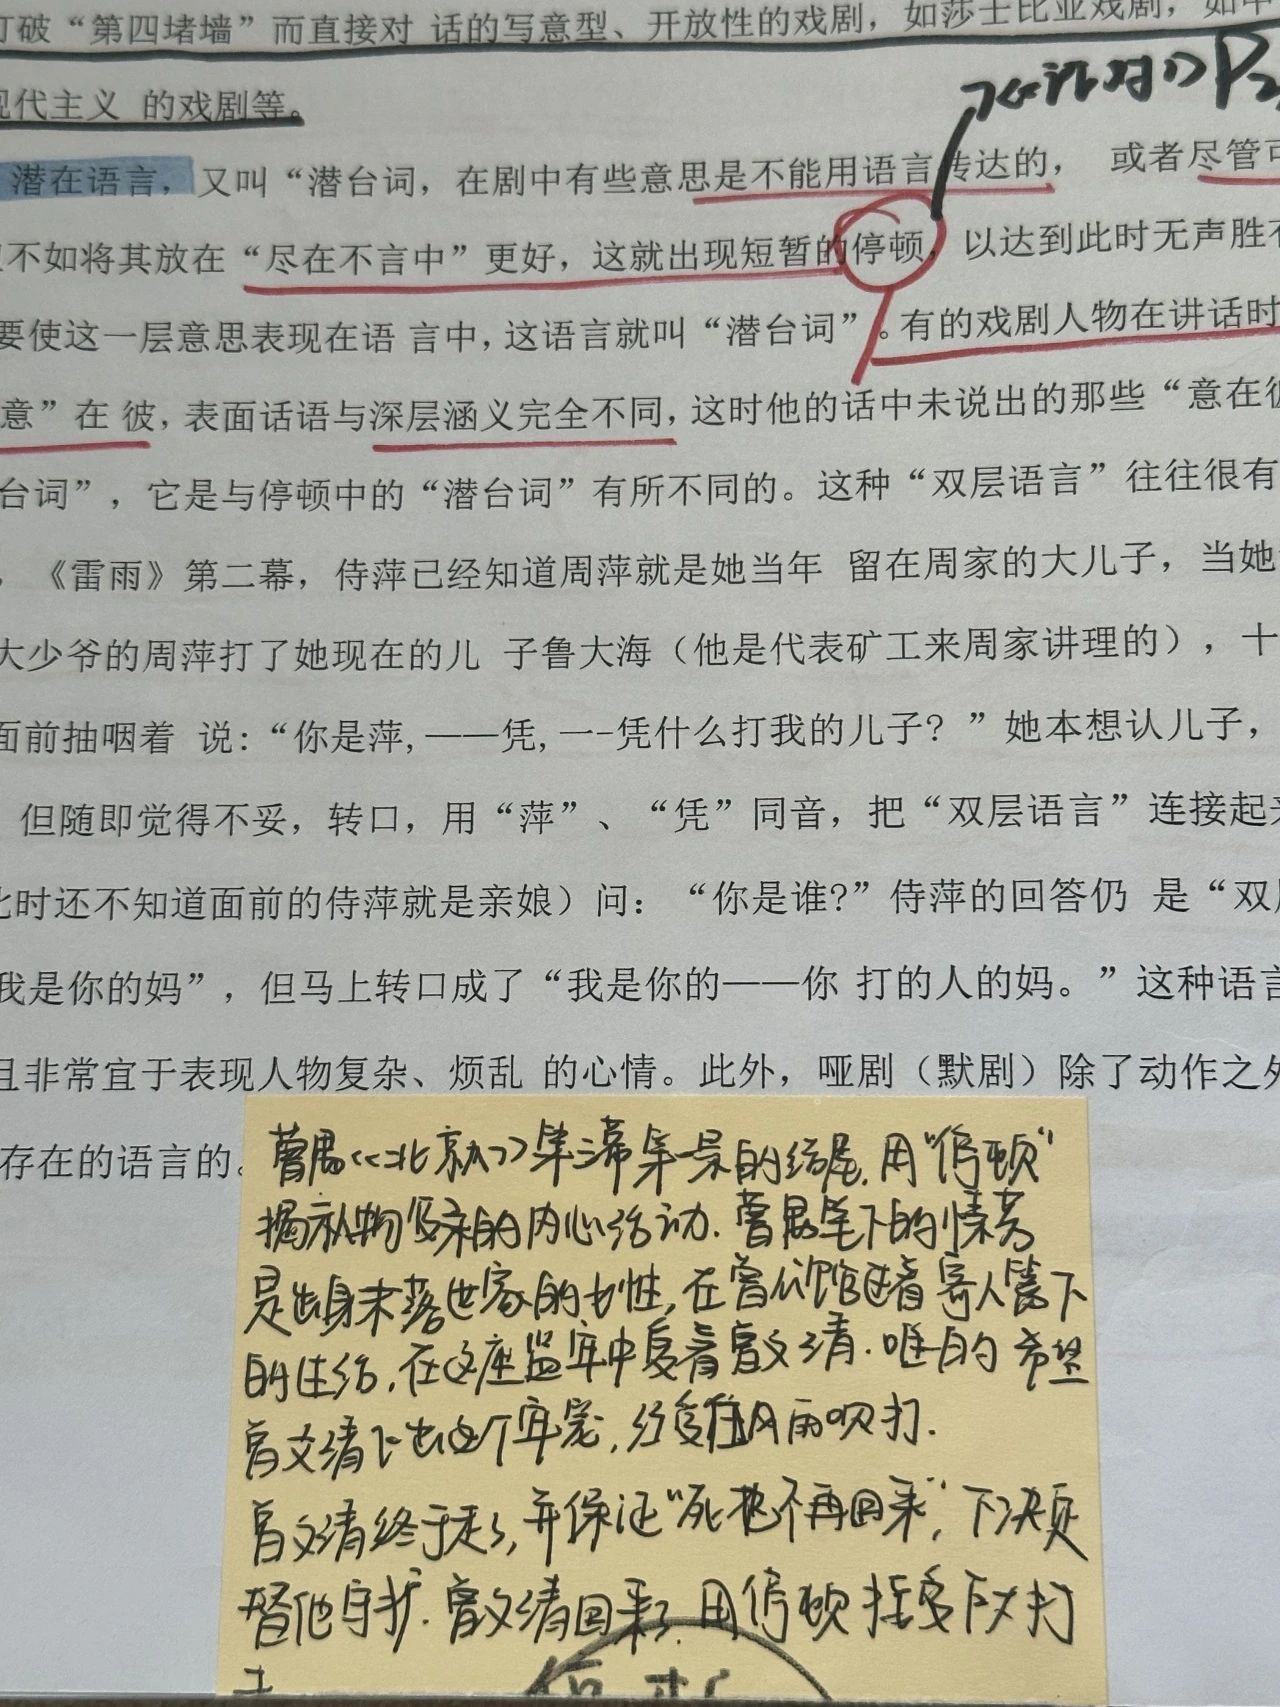 打破“第四堵墙”而直接对 话的写意型、开放性的戏剧，如莎士比亚戏剧，如中
现代主义 的戏剧等。
潜在语言，又叫“潜台词，在剧中有些意思是不能用语言传达的， 或者尽管可
不如将其放在“尽在不言中”更好，这就出现短暂的停顿，以达到此时无声胜有
要使这一层意思表现在语 言中，这语言就叫“潜台词”。有的戏剧人物在讲话时
意”在 彼，表面话语与深层涵义完全不同，这时他的话中未说出的那些“意在彼
台词”，它是与停顿中的“潜台词”有所不同的。这种“双层语言”往往很有
，《雷雨》第二幕，侍萍已经知道周萍就是她当年 留在周家的大儿子，当她
大少爷的周萍打了她现在的儿 子鲁大海（他是代表矿工来周家讲理的），十
面前抽咽着 说：“你是萍,——凭,一-凭什么打我的儿子？”她本想认儿子，
但随即觉得不妥，转口，用“萍”、“凭”同音，把“双层语言”连接起来
此时还不知道面前的侍萍就是亲娘）问：“你是谁?”侍萍的回答仍 是“双层
我是你的妈”，但马上转口成了“我是你的——你 打的人的妈。”这种语言
且非常宜于表现人物复杂、烦乱 的心情。此外，哑剧（默剧）除了动作之外
存在的语言的。
曹禺《北京人》第三幕第一景的结尾,用“停顿”
揭示人物复杂的内心活动.曹禺笔下的愫芳
是出身末落世家的女性,在曾公馆过着寄人篱下
的生活.在这座监牢中爱着曾文清.唯一的希望
曾文清飞出这个牢笼,经受住风雨吹打.
曾文清终于走了,并保证“死也不再回来”,下决定
替他守护.曾文清回来了.用停顿接受